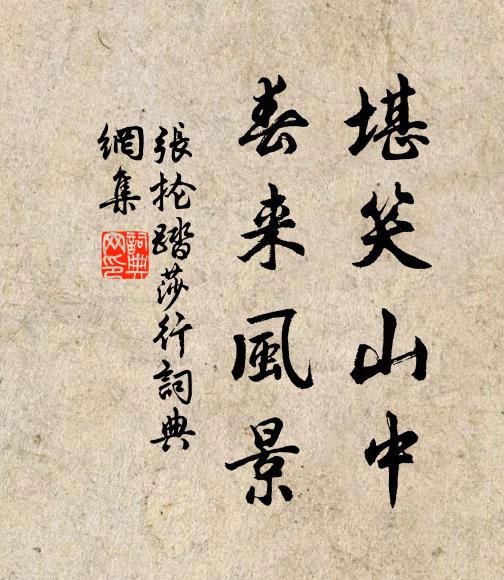 堪笑山中
春来風景
張掄踏莎行詞典
網集
詞典
网印